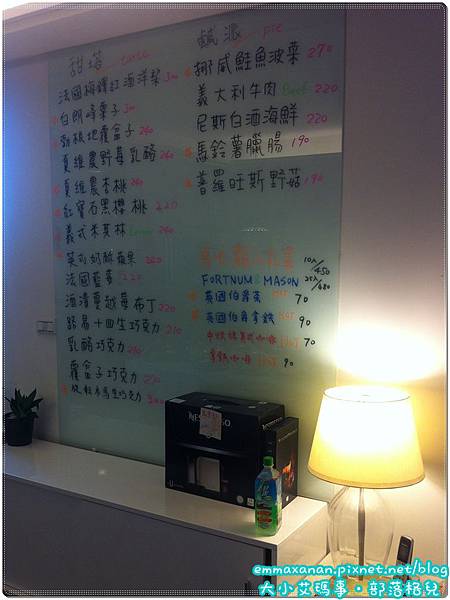 甜塔 tarte
法國梅鐸紅酒洋梨
白朗峰栗子
勃根地覆盆子 260
夏維農野莓乳酪
夏維農杏桃 260
紅寶石黑櫻桃 220
義式米萊林 260
英式奶酥蘋果 220
法國藍莓 220
酒漬蔓越莓布丁 220
路易十四生巧克力
乳酪巧克力 240
覆盆子巧克力
鹹派 pie
挪威鮭魚波菜 270
義大利牛肉 Beef 220
尼斯白酒海鮮 220
馬鈴薯臘腸 190
普羅旺斯野菇 190
10入/450
FORTNUM & MASON
英國伯爵茶 HOT 70
英國伯爵拿鐵 HOT 90
中烘焙美式咖啡 HOT 70
拿鐵咖啡 HOT 90
NESPRESSO
emmaxanan.pixnet.net/blog
大小艾瑪事。部落格兒